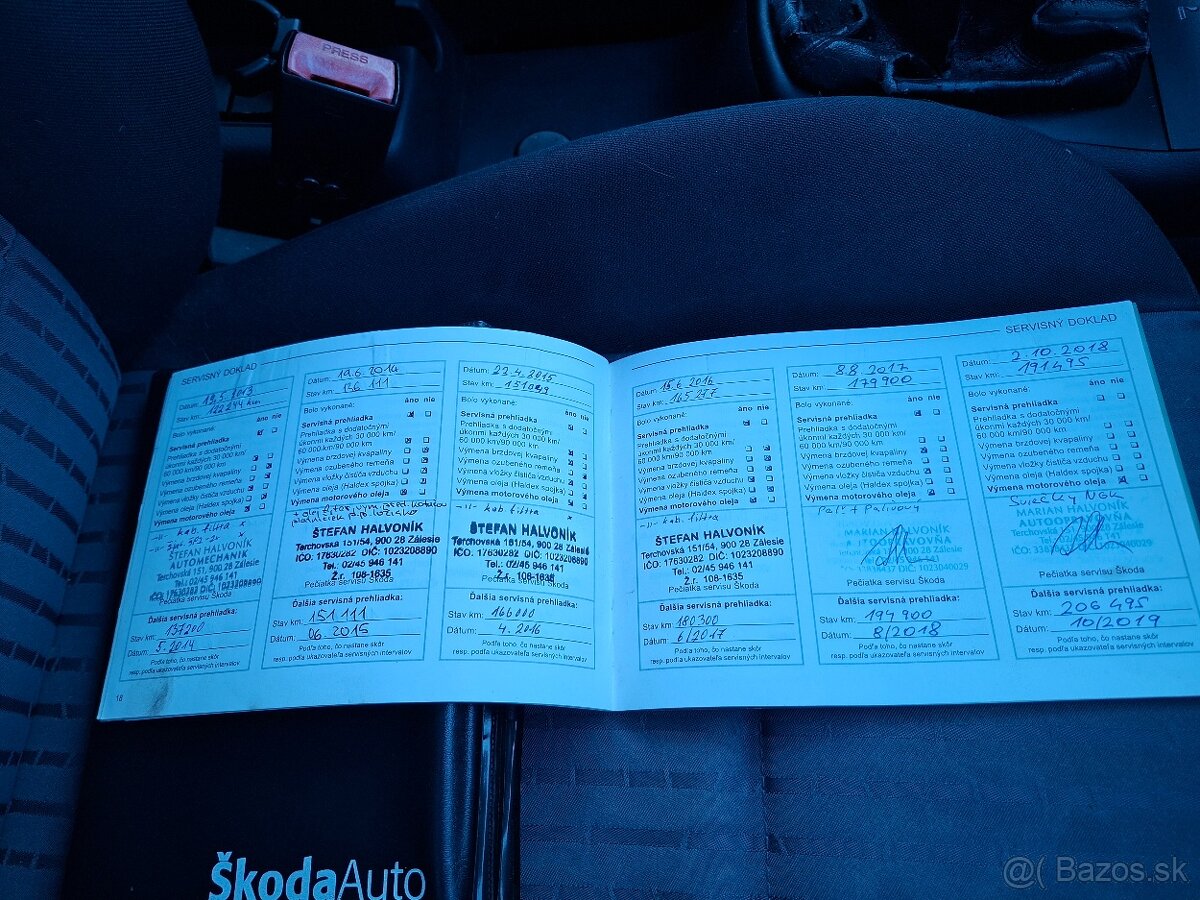 PRESS
SERVISNÝ DOKLAD
Dátum: 19.5.2013
Stav km: 122 244 km
Bolo vykonané: áno nie
Servisná prehliadka
Prehliadka s dodatočnými
úkonmi každých 30 000 km/
60 000 km/90 000 km
Výmena brzdovej kvapaliny
Výmena ozubeného remeňa
Výmena vložky čističa vzduchu
Výmena oleja (Haldex spojka)
Výmena motorového oleja
-"- kab. filtra x
ŠTEFAN HALVONÍK
AUTOMECHANIK
Terchovská 151, 900 28 Zálesie
Tel.: 02/45 946 141
IČO: 17630282 DIČ: 1023208890
Pečiatka servisu Škoda
Ďalšia servisná prehliadka:
Stav km: 137200
Dátum: 5.2014
Podľa toho, čo nastane skôr
resp. podľa ukazovateľa servisných intervalov
18
Dátum: 19.6.2014
Stav km: 136 111
Bolo vykonané: áno nie
Servisná prehliadka
Prehliadka s dodatočnými
úkonmi každých 30 000 km/
60 000 km/90 000 km
Výmena brzdovej kvapaliny
Výmena ozubeného remeňa
Výmena vložky čističa vzduchu
Výmena oleja (Haldex spojka)
Výmena motorového oleja
ŠTEFAN HALVONÍK
Terchovská 151/54, 900 28 Zálesie
IČO: 17630282 DIČ: 1023208890
Tel.: 02/45 946 141
Ž.r. 108-1635
Pečiatka servisu Škoda
Ďalšia servisná prehliadka:
Stav km: 151 111
Dátum: 06.2015
Podľa toho, čo nastane skôr
resp. podľa ukazovateľa servisných intervalov
Dátum: 22.4.2015
Stav km: 151093
Bolo vykonané: áno nie
Servisná prehliadka
Prehliadka s dodatočnými
úkonmi každých 30 000 km/
60 000 km/90 000 km
Výmena brzdovej kvapaliny
Výmena ozubeného remeňa
Výmena vložky čističa vzduchu
Výmena oleja (Haldex spojka)
Výmena motorového oleja
-"- kab. filtra x
ŠTEFAN HALVONÍK
Terchovská 151/54, 900 28 Zálesie
IČO: 17630282 DIČ: 1023208890
Tel.: 02/45 946 141
Ž.r. 108-1635
Pečiatka servisu Škoda
Ďalšia servisná prehliadka:
Stav km: 166000
Dátum: 4.2016
Podľa toho, čo nastane skôr
resp. podľa ukazovateľa servisných intervalov
SERVISNÝ DOKLAD
Dátum: 15.6.2016
Stav km: 165277
Bolo vykonané: áno nie
Servisná prehliadka
Prehliadka s dodatočnými
úkonmi každých 30 000 km/
60 000 km/90 000 km
Výmena brzdovej kvapaliny
Výmena ozubeného remeňa
Výmena vložky čističa vzduchu
Výmena oleja (Haldex spojka)
Výmena motorového oleja
-"- kab. filtra
ŠTEFAN HALVONÍK
Terchovská 151/54, 900 28 Zálesie
IČO: 17630282 DIČ: 1023208890
Tel.: 02/45 946 141
Ž.r. 108-1635
Pečiatka servisu Škoda
Ďalšia servisná prehliadka:
Stav km: 180300
Dátum: 6/2017
Podľa toho, čo nastane skôr
resp. podľa ukazovateľa servisných intervalov
Dátum: 8.8.2017
Stav km: 179900
Bolo vykonané: áno nie
Servisná prehliadka
Prehliadka s dodatočnými
úkonmi každých 30 000 km/
60 000 km/90 000 km
Výmena brzdovej kvapaliny
Výmena ozubeného remeňa
Výmena vložky čističa vzduchu
Výmena oleja (Haldex spojka)
Výmena motorového oleja
Palivový
MARIAN HALVONÍK
Zálesie
DIČ: 1023040029
Pečiatka servisu Škoda
Ďalšia servisná prehliadka:
Stav km: 194900
Dátum: 8/2018
Podľa toho, čo nastane skôr
resp. podľa ukazovateľa servisných intervalov
Dátum: 2.10.2018
Stav km: 191495
Bolo vykonané: áno nie
Servisná prehliadka
Prehliadka s dodatočnými
úkonmi každých 30 000 km/
60 000 km/90 000 km
Výmena brzdovej kvapaliny
Výmena ozubeného remeňa
Výmena vložky čističa vzduchu
Výmena oleja (Haldex spojka)
Výmena motorového oleja
Sviečky NGK
MARIAN HALVONÍK
Zálesie
Pečiatka servisu Škoda
Ďalšia servisná prehliadka:
Stav km: 206 495
Dátum: 10/2019
Podľa toho, čo nastane skôr
resp. podľa ukazovateľa servisných intervalov
ŠkodaAuto
@( Bazos.sk